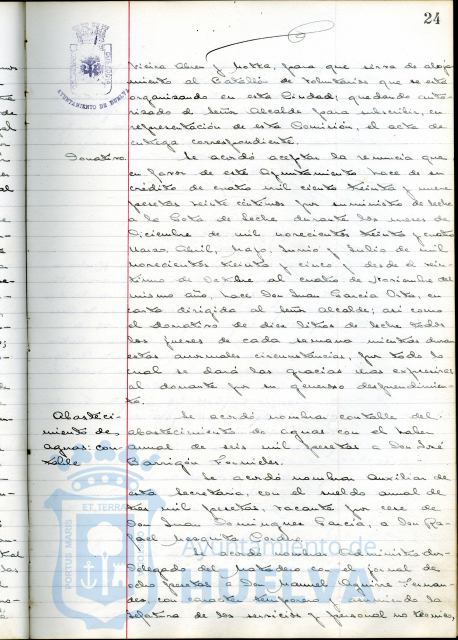 24
AYUNTAMIENTO DE HUELVA
y Motta, para que sirva de aloja-
miento al Batallón de Voluntarios que se está
organizando en esta Ciudad; quedando auto-
rizado el Señor Alcalde para subscribir, en
representación de esta Comisión, el acta de
entrega correspondiente.
Donativo.
Se acordó aceptar la renuncia que
en favor de este Ayuntamiento, hace de su
crédito de cuatro mil ciento treinta y nueve
pesetas veinte céntimos por suministro de leche
a la Gota de leche durante los meses de
Diciembre de mil novecientos treinta y cuatro
Marzo, Abril, Mayo, Junio y Julio de mil
novecientos treinta y cinco y desde el vein-
timo de Octubre al cuatro de Noviembre del
mismo año, hace Don Juan García Orta, en
carta dirigida al Señor Alcalde; así como
el donativo de diez litros de leche todos
los jueves de cada semana mientras duren
estas anormales circunstancias, por todo lo
cual se dará las gracias más expresivas
al donante por su generoso desprendimien-
to.
Abasteci-
miento de
aguas: con-
table
Se acordó nombrar contable del
abastecimiento de aguas con el haber
anual de seis mil pesetas a Don José
Barrigón Fornieles.
Se acordó nombrar Auxiliar de
esta Secretaría, con el sueldo anual de
tres mil pesetas, vacante por cese de
Don Juan Domínguez García, a Don Ra-
fael Mosquita
Se acordó nombrar Administrador-
Delegado del Matadero con el jornal de
ocho pesetas a Don Manuel Aguirre Fernan-
dez, con carácter temporero y asumiendo la
jefatura de los servicios y personal no técnico,
PORTUS MARIS ET TERRAE
Ayuntamiento de
HUELVA